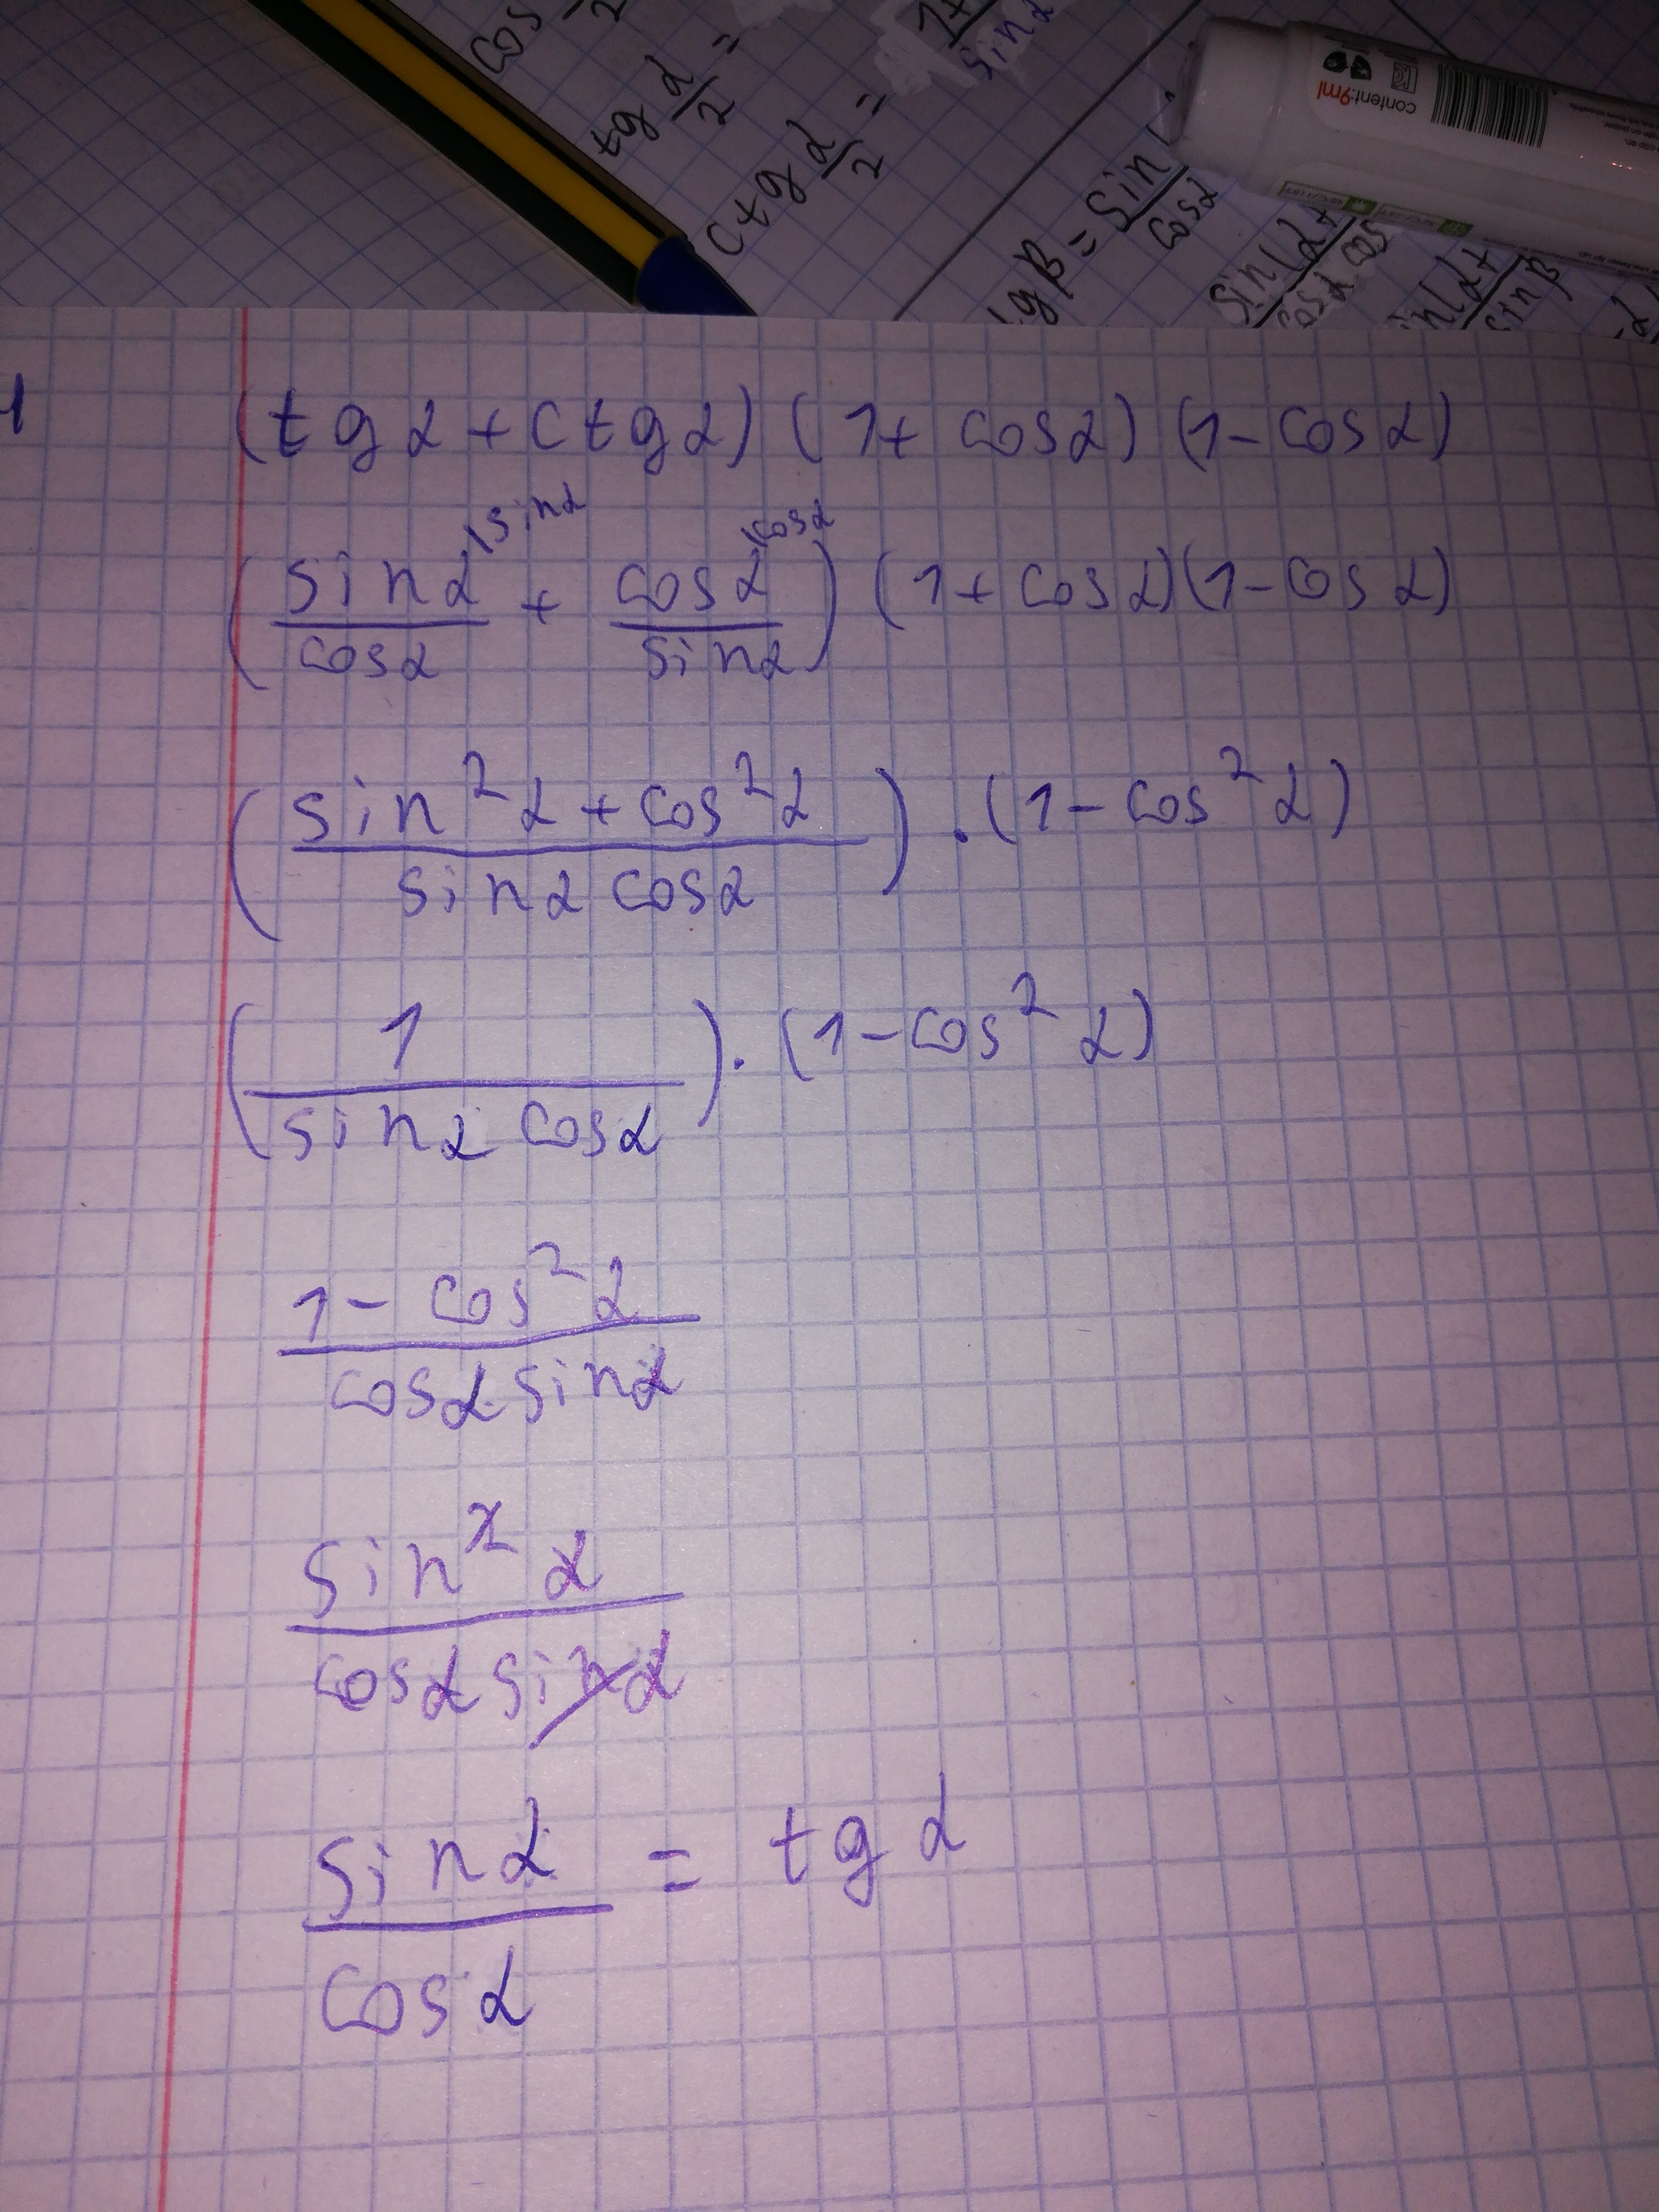 cos
2
tg α/2 =
ctg α/2 =
1+
sin α
tg β = sin
cos α
sin(α+
cos α cos
in(α+
sin β
content:9ml
1 (tg α + ctg α) (1 + cos α) (1 - cos α)
\sin α \cos α
(sin α / cos α + cos α / sin α) (1 + cos α)(1 - cos α)
(sin² α + cos² α / sin α cos α) · (1 - cos² α)
(1 / sin α cos α) · (1 - cos² α)
1 - cos² α / cos α sin α
sin² α / cos α sin α
sin α / cos α = tg α